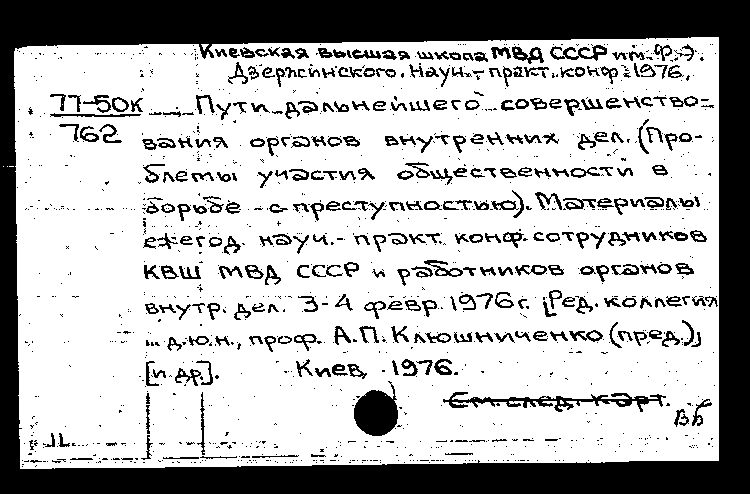 Киевская высшая школа МВД СССР им. Ф.Э.
Дзержинского. Науч.-практ. конф. 1976.
77-50к Пути дальнейшего совершенство-
762 вания органов внутренних дел. (Про-
блемы участия общественности в
борьбе с преступностью). Материалы
ежегод. науч.-практ. конф. сотрудников
КВШ МВД СССР и работников органов
внутр. дел. 3-4 февр. 1976 г. [Ред. коллегия
... д.ю.н., проф. А.П. Клюшниченко (пред.)]
[и др]. Киев, 1976.
См. след. карт.
Вб